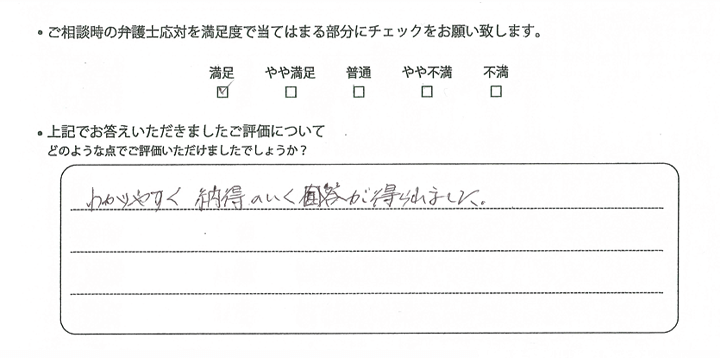 • ご相談時の弁護士応対を満足度で当てはまる部分にチェックをお願い致します。
満足 やや満足 普通 やや不満 不満
☑ □ □ □ □
• 上記でお答えいただきましたご評価について
どのような点でご評価いただけましたでしょうか？
わかりやすく 納得のいく回答が得られました。